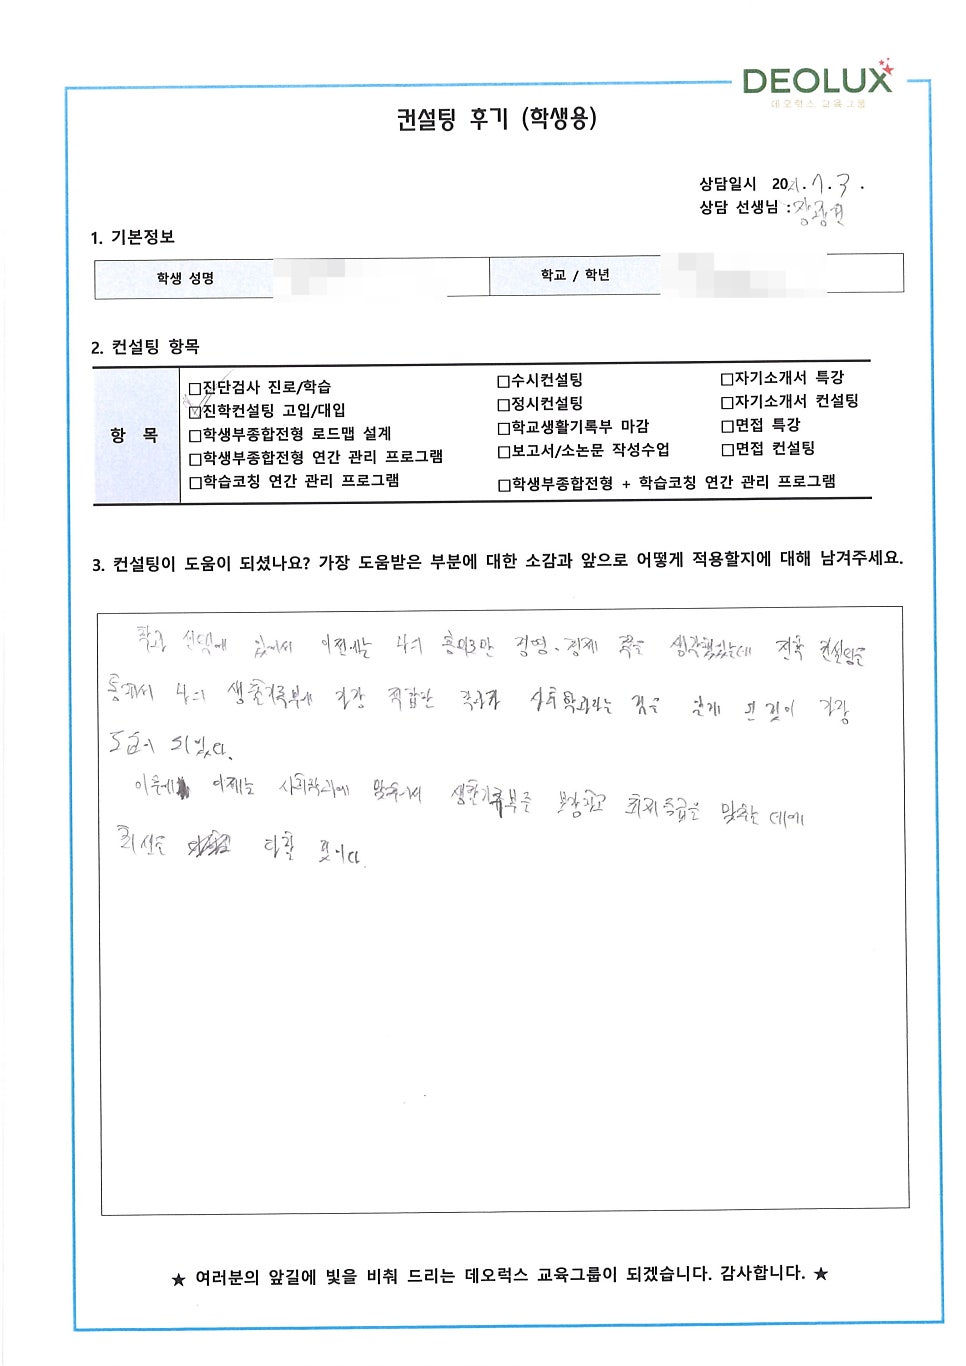 DEOLUX
데오럭스 교육그룹
컨설팅 후기 (학생용)
상담일시 2021.7.3.
상담 선생님 :
1. 기본정보
학생 성명
학교 / 학년
2. 컨설팅 항목
항 목
□진단검사 진로/학습
□진학컨설팅 고입/대입
□학생부종합전형 로드맵 설계
□학생부종합전형 연간 관리 프로그램
□학습코칭 연간 관리 프로그램
□수시컨설팅
□정시컨설팅
□학교생활기록부 마감
□보고서/소논문 작성수업
□학생부종합전형 + 학습코칭 연간 관리 프로그램
□자기소개서 특강
□자기소개서 컨설팅
□면접 특강
□면접 컨설팅
3. 컨설팅이 도움이 되셨나요? 가장 도움받은 부분에 대한 소감과 앞으로 어떻게 적용할지에 대해 남겨주세요.
학과 선택에 있어서 이전에는 나의 흥미로만 경영·경제 쪽을 생각했었는데 컨설팅을
통해서 나의 생활기록부에 가장 적합한 학과가 사회학과라는 것을 알게 된 것이 가장
도움이 되었다.
이제는 사회학과에 맞춰서 생활기록부를 보강하고 등급을 맞추는 데에
최선을 다할 것이다.
★ 여러분의 앞길에 빛을 비춰 드리는 데오럭스 교육그룹이 되겠습니다. 감사합니다. ★